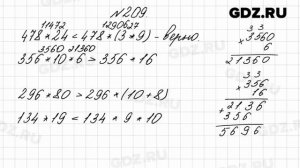 №209
GDZ.RU
11472 1290627
478*24 < 478*(3*9) - верно.
3560 21360
356*10*6 > 356*16
296*80 > 296*(10+8)
134*19 < 134*9*10
3 3
* 3560
6
21360
3 3
* 356
16
+ 2136
356
5696
GDZ.RU